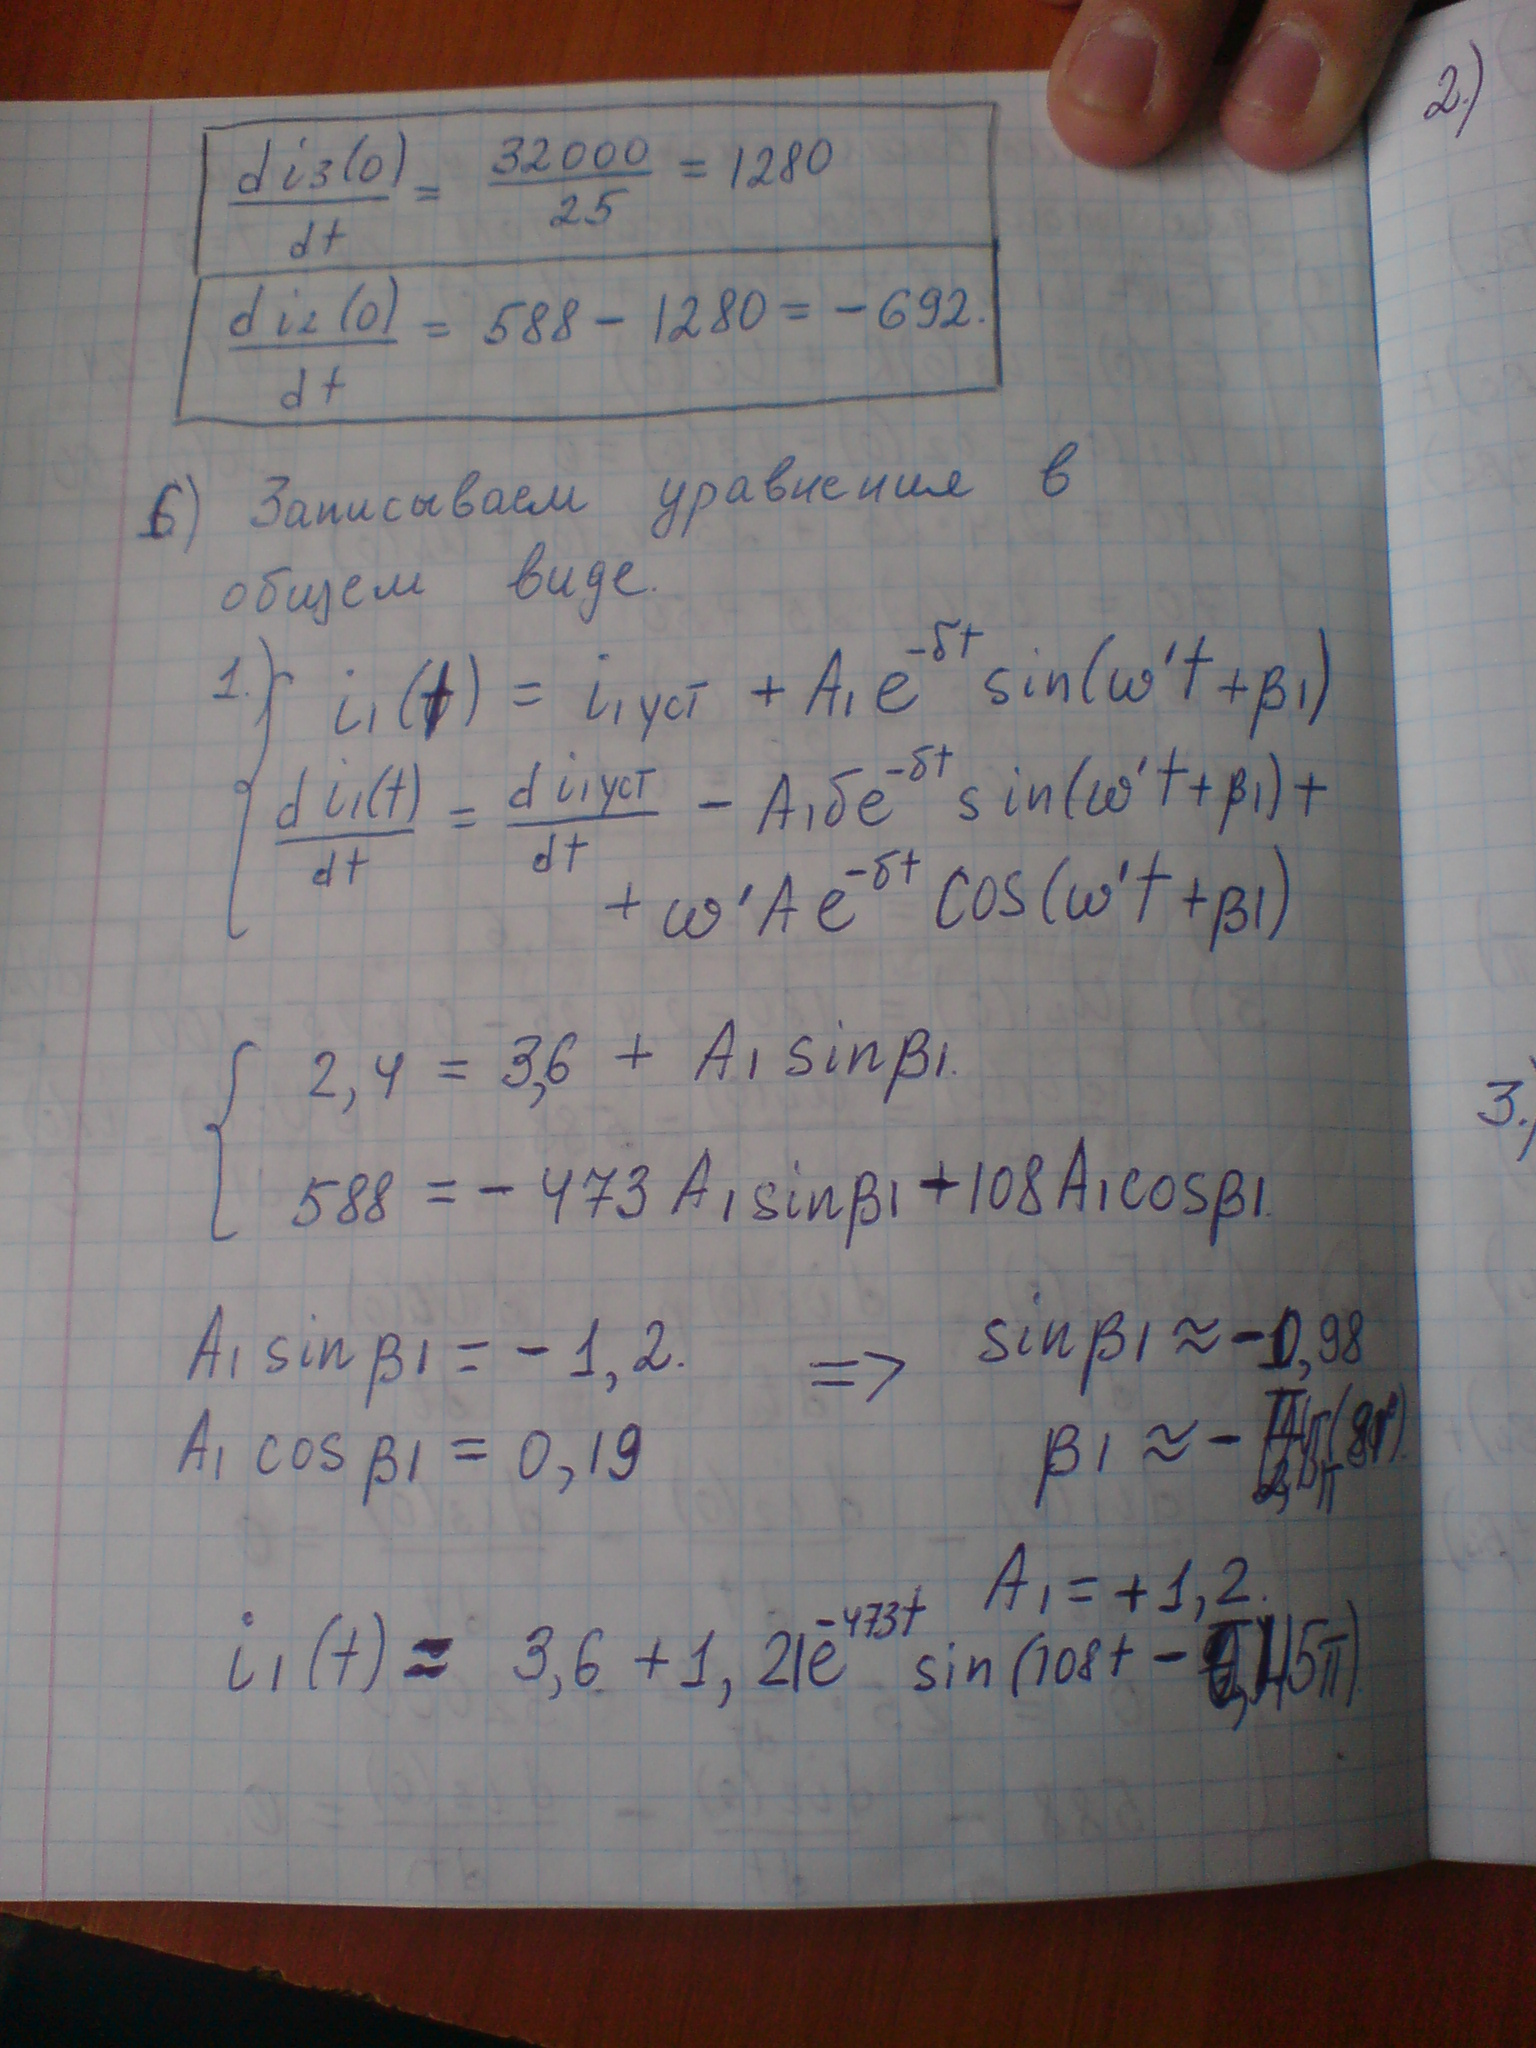 di3(0)/dt = 32000/25 = 1280
di2(0)/dt = 588 - 1280 = -692.
6) Записываем уравнения в
общем виде.
1.) i1(t) = i1уст + A1e^-δt sin(ω't + β1)
di1(t)/dt = di1уст/dt - A1δe^-δt sin(ω't + β1) +
+ ω'Ae^-δt cos(ω't + β1)
2,4 = 3,6 + A1 sinβ1.
588 = - 473 A1 sinβ1 + 108 A1 cosβ1.
A1 sinβ1 = - 1, 2. => sinβ1 ≈ -0,98
A1 cosβ1 = 0,19 β1 ≈ -
A1 = +1,2.
i1(t) ≈ 3,6 + 1,21e^-473t sin(108t - 0,45π)
2.)
3.)